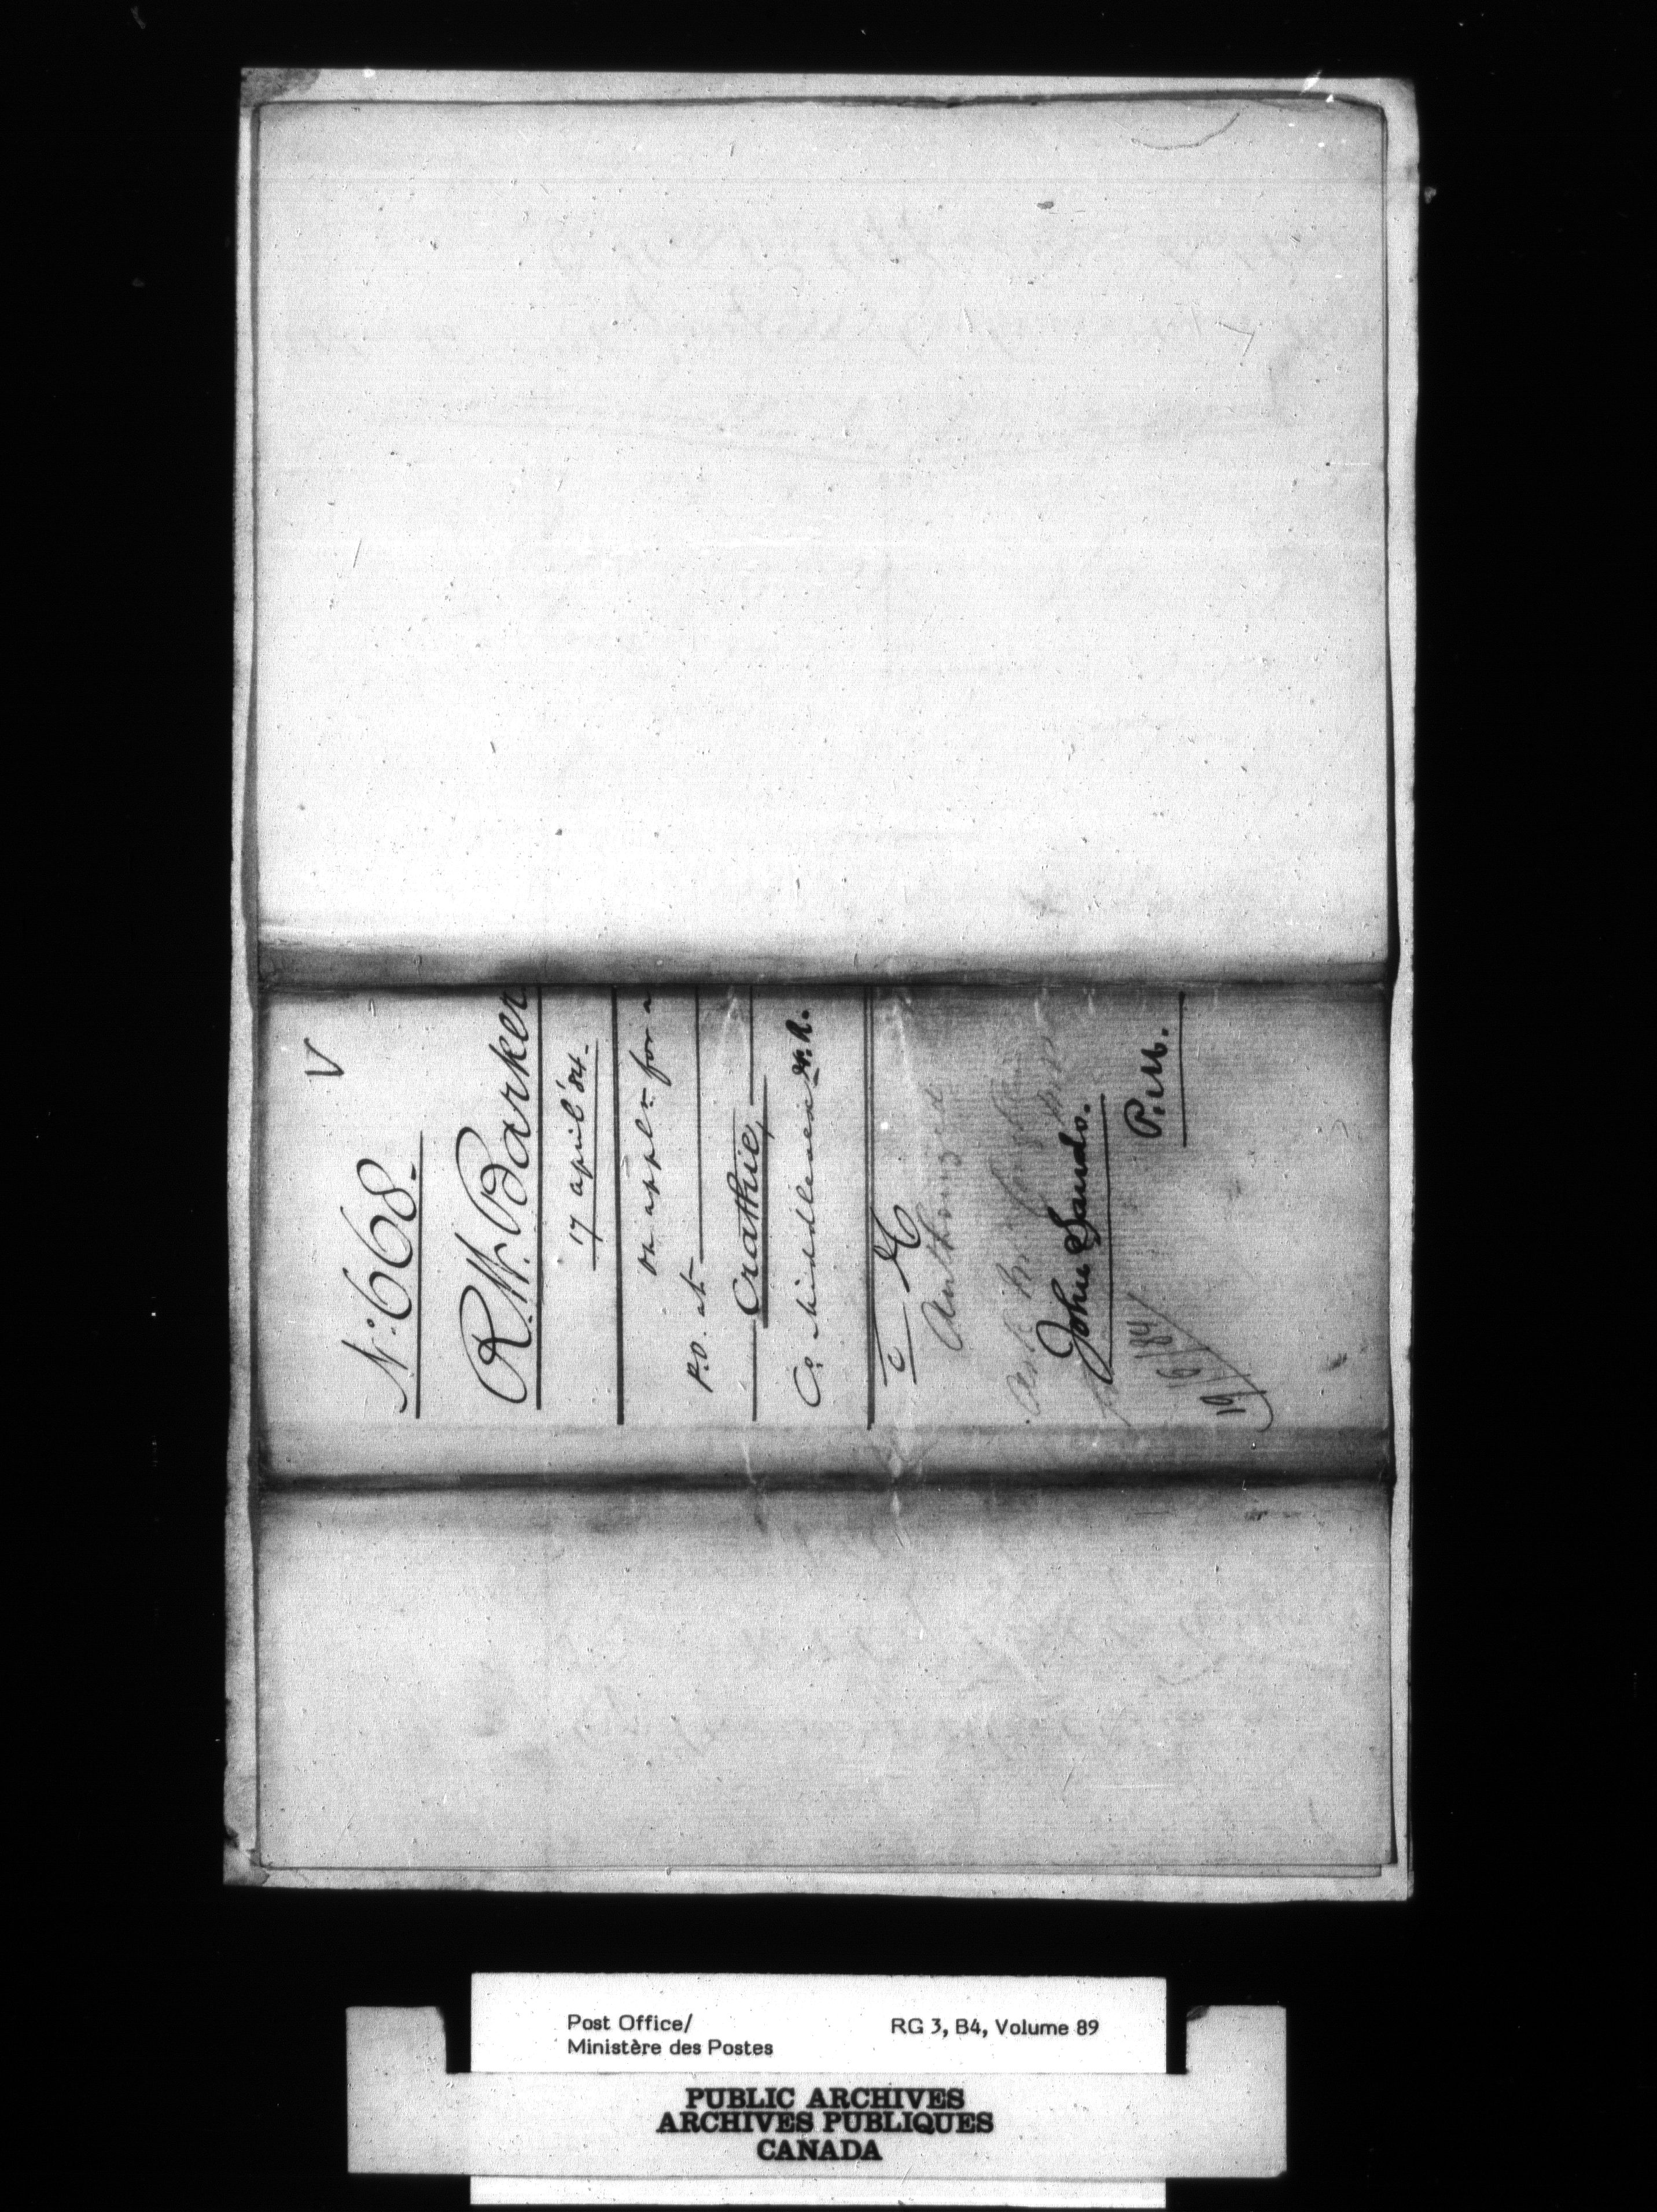 V
No. 668.
R.W. Barker
17 april '84.
on appln for a
P.O. at
Crathie,
Co. Middlesex W.R.
Authorized
John Sands.
P.M.
19/6/84
Post Office/
Ministère des Postes
RG 3, B4, Volume 89
PUBLIC ARCHIVES
ARCHIVES PUBLIQUES
CANADA